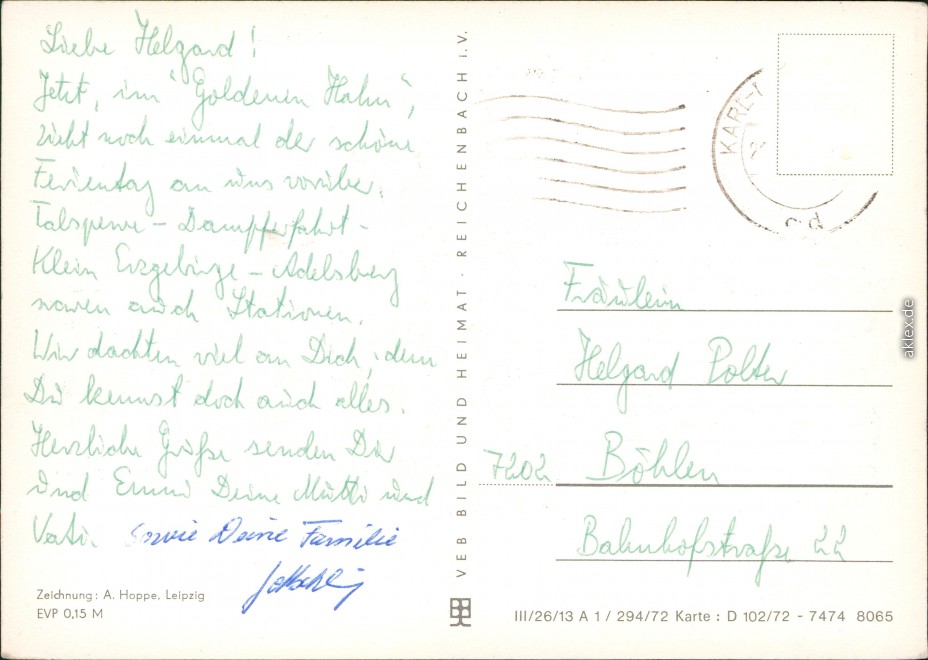 Liebe Helgard!
Jetzt, im "Goldenen Hahn",
zieht noch einmal der schöne
Ferientag an uns vorüber.
Talsperre - Dampferfahrt -
Klein Erzgebirge - Adelsberg
waren auch Stationen.
Wir dachten viel an Dich, denn
Du kennst doch auch alles.
Herzliche Grüße senden Dir
und Emmi Deine Mutti und
Vati. sowie Deine Familie
Zeichnung: A. Hoppe, Leipzig
EVP 0,15 M
VEB BILD UND HEIMAT · REICHENBACH i. V.
KARL-
Fräulein
Helgard Polter
7202 Böhlen
Bahnhofstraße 22
III/26/13 A 1 / 294/72 Karte : D 102/72 - 7474 8065
aklex.de